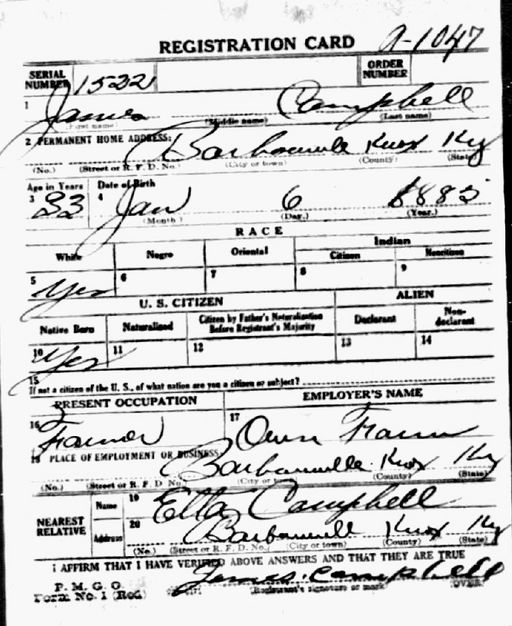 REGISTRATION CARD A-1047
SERIAL NUMBER 1522 ORDER NUMBER
1 James Campbell
(First name) (Middle name) (Last name)
2 PERMANENT HOME ADDRESS: Barbourville Knox Ky
(No.) (Street or R. F. D. No.) (City or town) (County) (State)
Age in Years Date of Birth
3 33 4 Jan 6 1885
(Month.) (Day.) (Year.)
RACE
White Negro Oriental Indian
Citizen Noncitizen
5 Yes 6 7 8 9
U. S. CITIZEN ALIEN
Native Born Naturalized Citizen by Father's Naturalization Before Registrant's Majority Declarant Non-declarant
10 Yes 11 12 13 14
15 If not a citizen of the U. S., of what nation are you a citizen or subject?
PRESENT OCCUPATION EMPLOYER'S NAME
16 Farmer 17 Own Farm
18 PLACE OF EMPLOYMENT OR BUSINESS: Barbourville Knox Ky
(No.) (Street or R. F. D. No.) (City or town) (County) (State)
NEAREST RELATIVE Name 19 Etta Campbell
Address 20 Barbourvill Knox Ky
(No.) (Street or R. F. D. No.) (City or town) (County) (State)
I AFFIRM THAT I HAVE VERIFIED ABOVE ANSWERS AND THAT THEY ARE TRUE
P. M. G. O.
Form No. 1 (Red) James Campbell
(Registrant's signature or mark) (OVER)